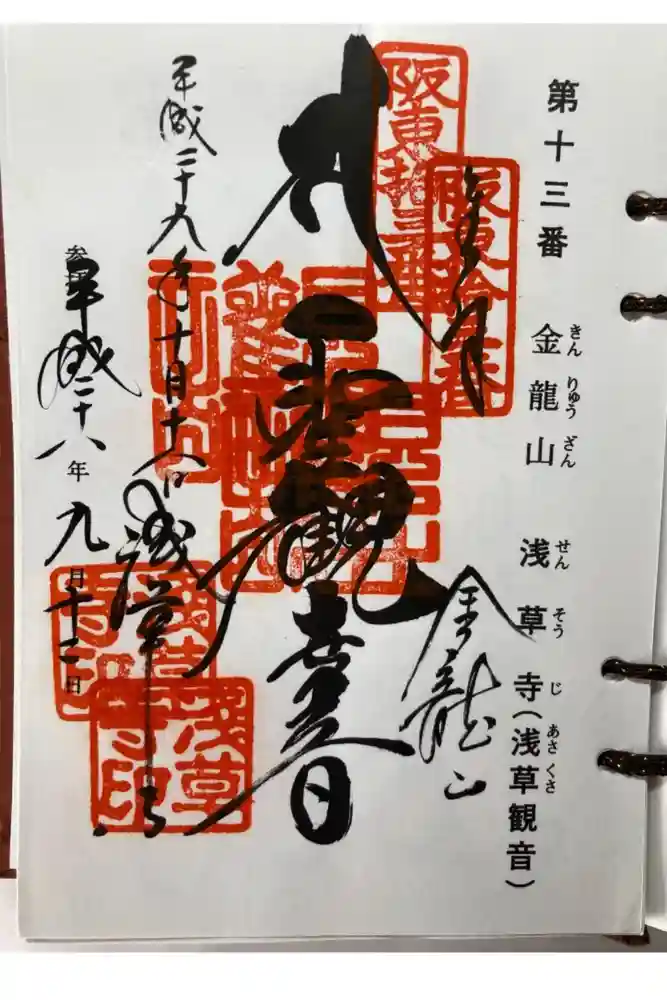 第十三番 金龍山 浅草寺(浅草観音)
きん りゅう ざん せん そう じ あさ くさ
阪東拾三番
阪東拾三番
奉拝
金龍山
聖観世音
浅草寺
平成二十九年十月十八日
平成二十八年九月十二日
浅草寺印
浅草寺印